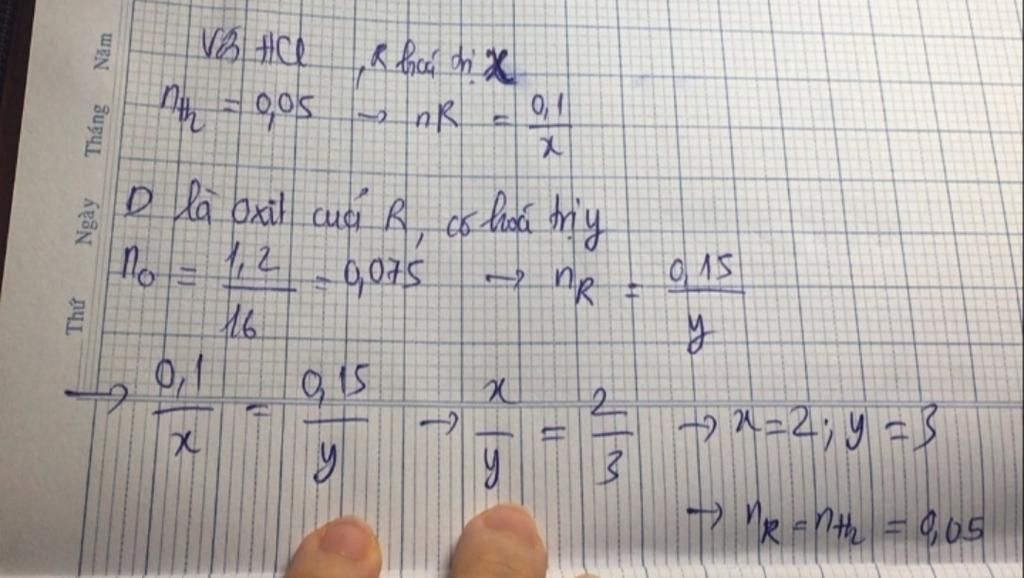 Năm
Tháng
Ngày
Thứ
Với HCl , R hoá trị x
nH2 = 0,05 → nR = 0,1 / x
D là oxit cuả R, có hoá trị y
nO = 1,2 / 16 = 0,075 → nR = 0,15 / y
→ 0,1 / x = 0,15 / y → x / y = 2 / 3 → x = 2; y = 3
→ nR = nH2 = 0,05